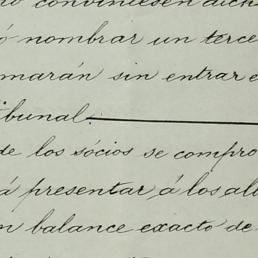 no conviniesen dich
ó nombrar un terce
marán sin entrar e
ibunal.
de los sócios se compro
á presentar á los alu
n balance exacto de